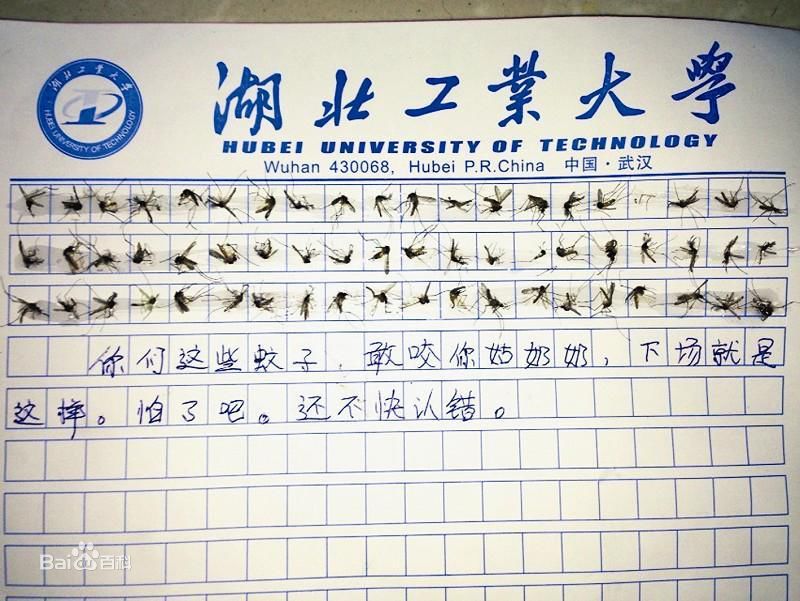 湖北工业大学
HUBEI UNIVERSITY OF TECHNOLOGY
湖北工業大學
HUBEI UNIVERSITY OF TECHNOLOGY
Wuhan 430068, Hubei P.R.China 中国·武汉
你们这些蚊子,敢咬你姑奶奶,下场就是
这样。怕了吧。还不快认错。
Baidu百科